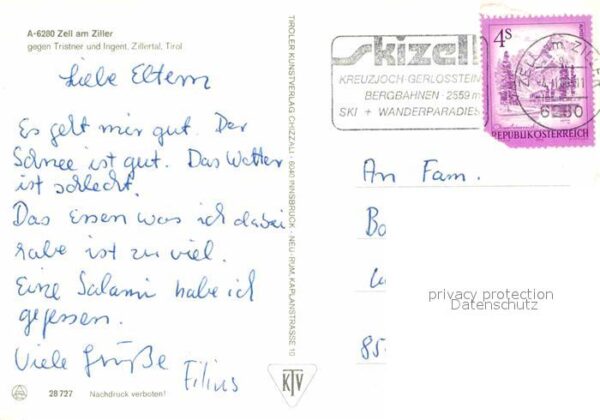 A-6280 Zell am Ziller
gegen Tristner und Ingent, Zillertal, Tirol
Liebe Eltern
Es geht mir gut. Der
Schnee ist gut. Das Wetter
ist schlecht.
Das Essen was ich dabei
habe ist zu viel.
Eine Salami habe ich
gegessen.
Viele Grüße
Filius
28 727
Nachdruck verboten!
TIROLER KUNSTVERLAG CHIZZALI · 6040 INNSBRUCK - NEU-RUM, KAPLANSTRASSE 10
KTV
skizell
KREUZJOCH-GERLOSSTEIN
BERGBAHNEN · 2559 m
SKI + WANDERPARADIES
4S
REPUBLIK ÖSTERREICH
ZELL am ZILLER
6280
An Fam.
85
privacy protection
Datenschutz